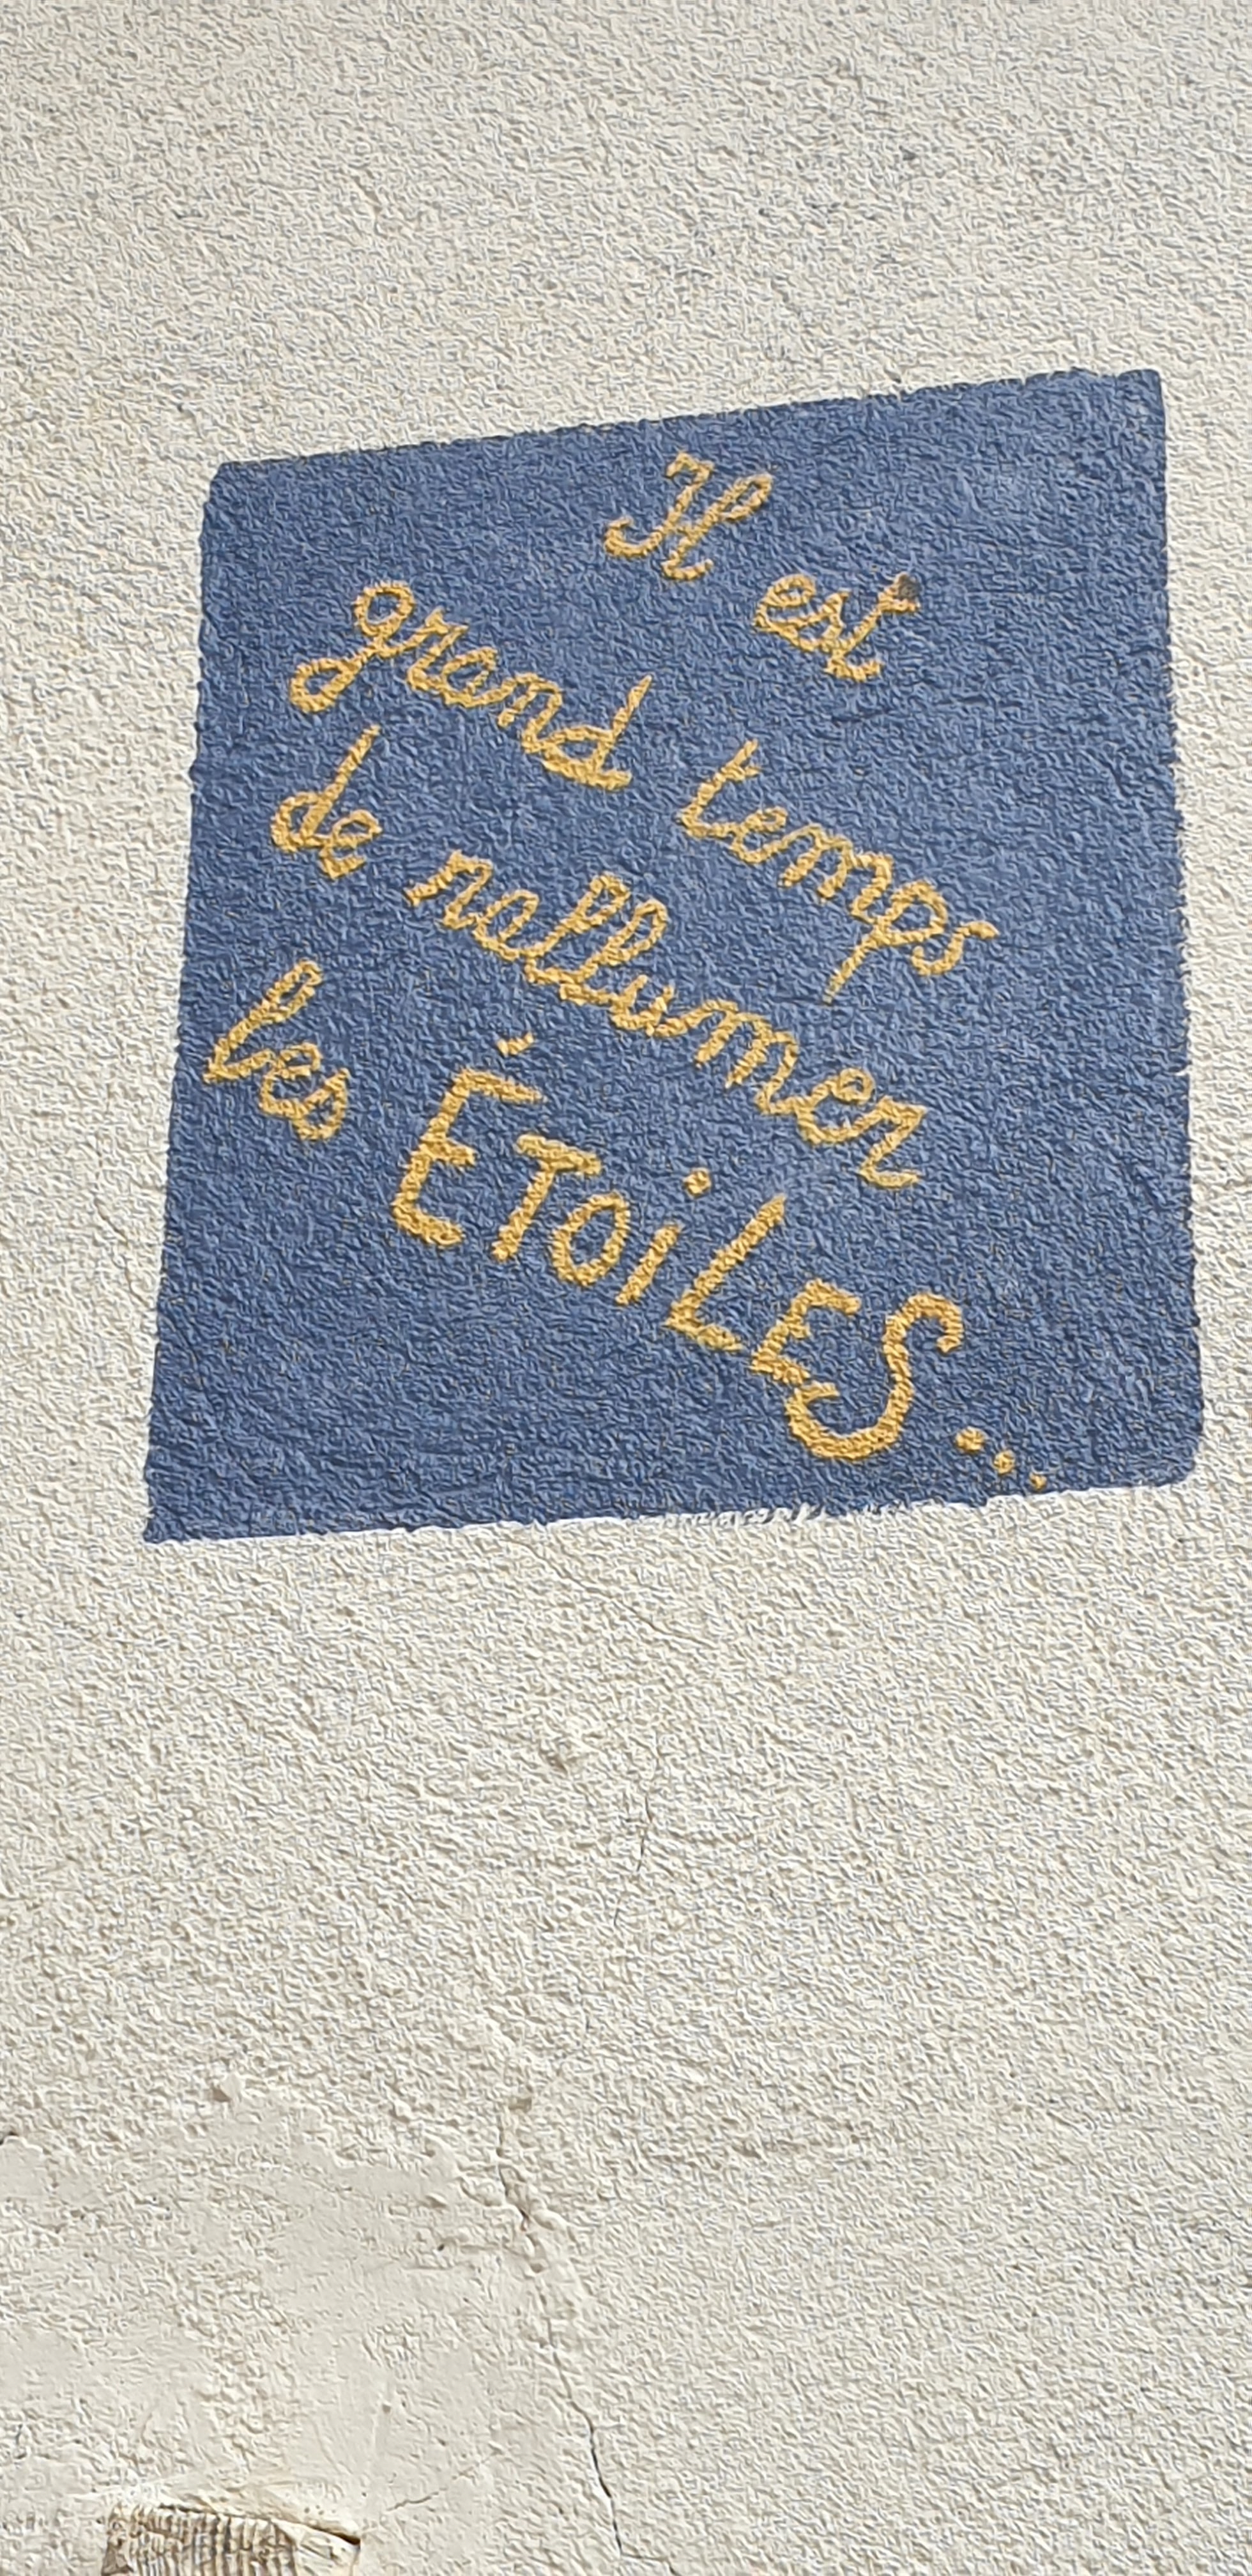 Il est
grand temps
de rallumer
les ÉToiLES...